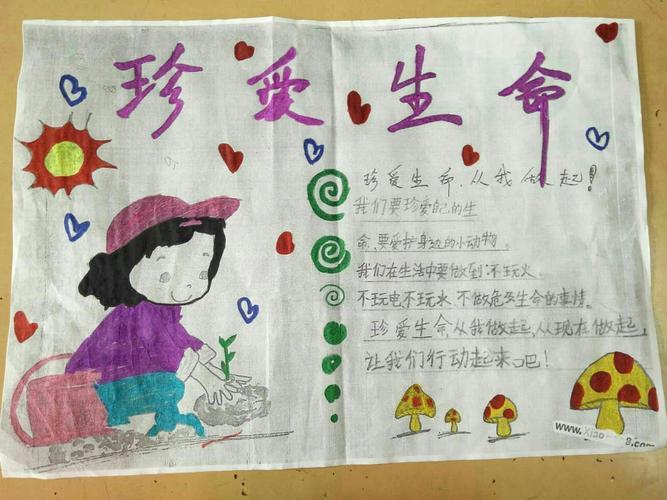 珍爱生命
珍爱生命,从我做起!
我们要珍爱自己的生
命,要爱护身边的小动物。
我们在生活中要做到:不玩火、
不玩电不玩水、不做危及生命的事情。
珍爱生命从我做起,从现在做起,
让我们行动起来吧!
www.Xiao
8.com